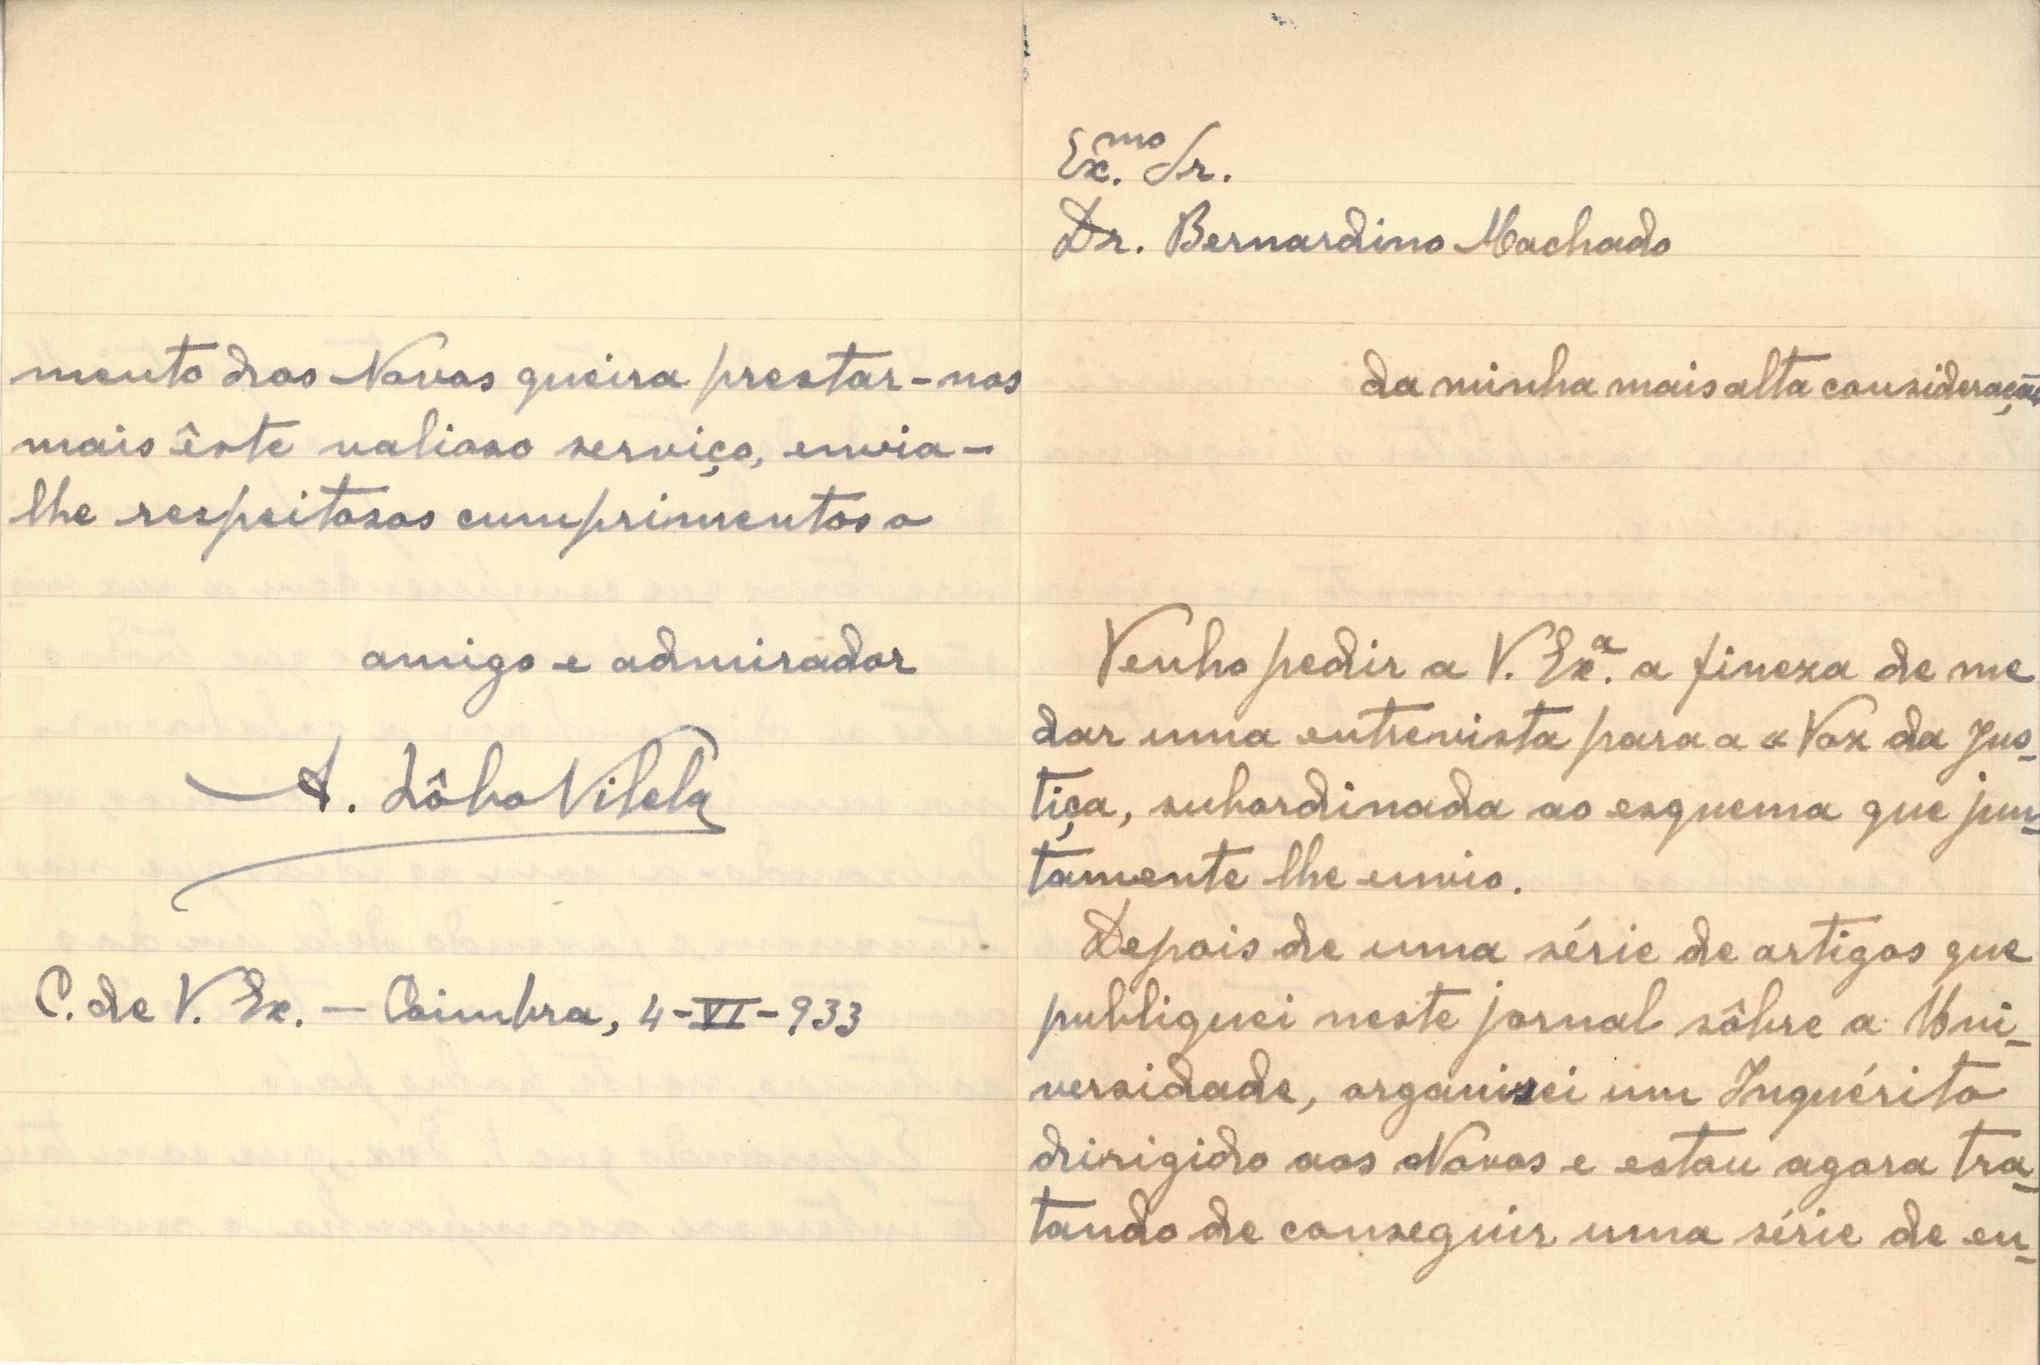 Ex.mo Sr.
Dr. Bernardino Machado
da minha mais alta consideração
Venho pedir a V. Ex.a a fineza de me
dar uma entrevista para a «Voz da Jus-
tiça, subordinada ao esquema que jun-
tamente lhe envio.
Depois de uma série de artigos que
publiquei neste jornal sôbre a Uni-
versidade, organisei um Inquérito
dirigido aos Novos e estou agora tra-
tando de conseguir uma série de en-
mento dos Novos queira prestar-nos
mais êste valioso serviço, envia-
lhe respeitosos cumprimentos o
amigo e admirador
A. Lôbo Vilela
C. de V. Ex. — Coimbra, 4-VI-933